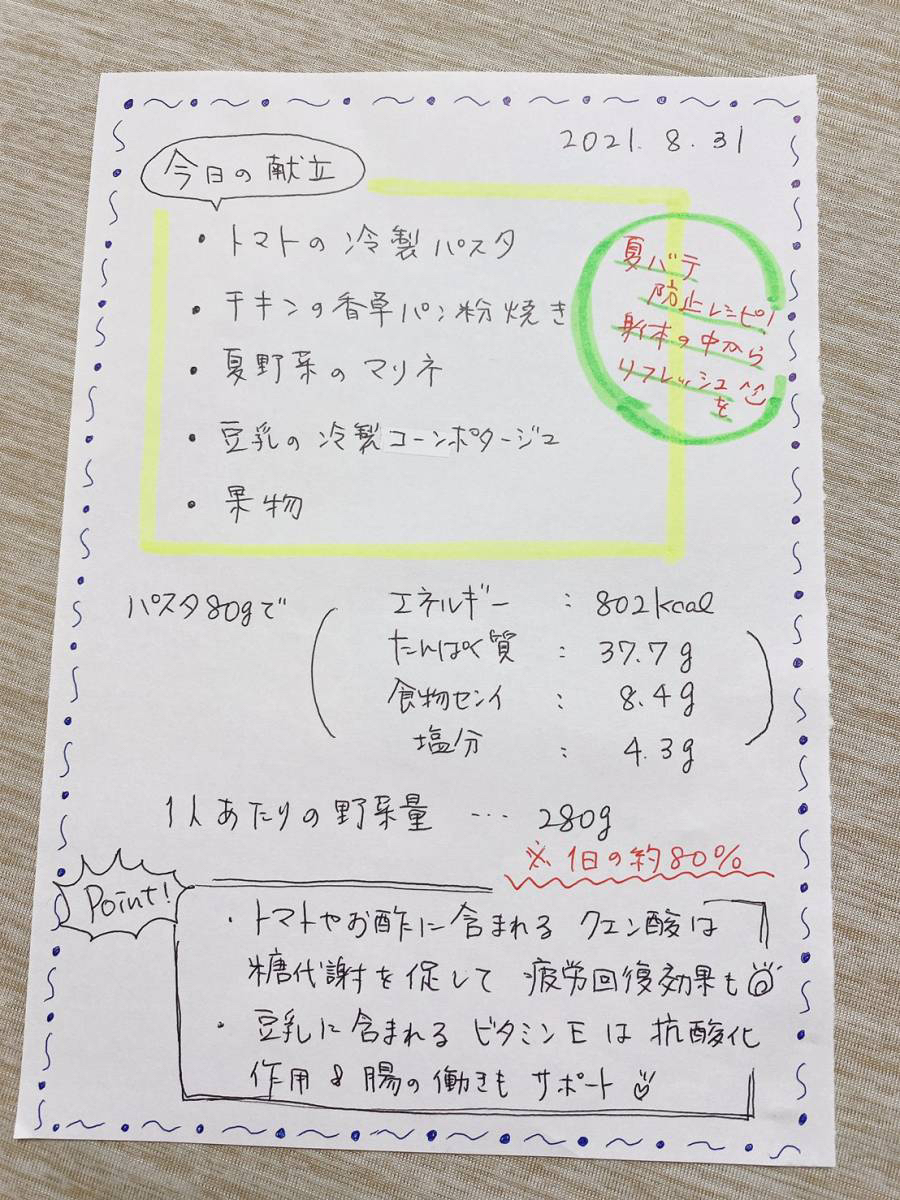 2021. 8. 31
今日の献立
・トマトの冷製パスタ
・チキンの香草パン粉焼き
・夏野菜のマリネ
・豆乳の冷製コーンポタージュ
・果物
夏バテ
防止レシピ!
身体の中から
リフレッシュ
を
パスタ80gで
エネルギー : 802kcal
たんぱく質 : 37.7g
食物センイ : 8.4g
塩分 : 4.3g
1人あたりの野菜量 … 280g
※1日の約80%
Point!
・トマトやお酢に含まれる クエン酸は
糖代謝を促して 疲労回復効果も
・豆乳に含まれる ビタミンEは 抗酸化
作用 & 腸の働きも サポート